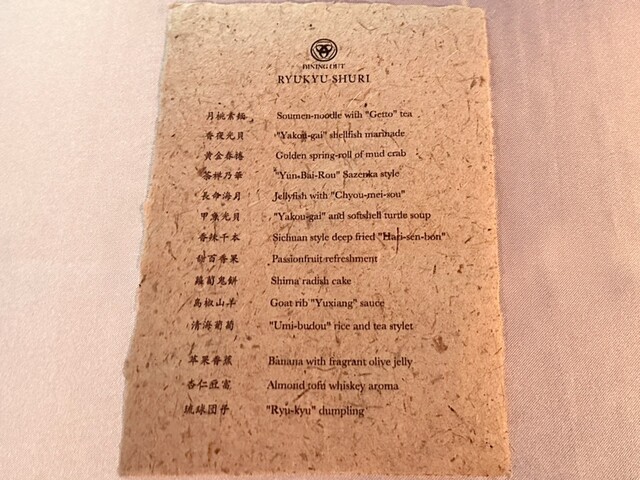 DINING OUT
RYUKYU SHURI
月桃素麺 Soumen-noodle with "Getto" tea
香夜光貝 "Yakou-gai" shellfish marinade
黄金春捲 Golden spring-roll of mud crab
答祥乃華 "Yun-Bai-Rou" Sazenka style
長命海月 Jellyfish with "Chyou-mei-sou"
甲魚光貝 "Yakou-gai" and softshell turtle soup
香辣千本 Sichuan style deep fried "Hari-sen-bon"
甜百香果 Passionfruit refreshment
蘿蔔鬼餅 Shima radish cake
島椒山羊 Goat rib "Yuxiang" sauce
清海葡萄 "Umi-budou" rice and tea stylet
苹果香蕉 Banana with fragrant olive jelly
杏仁豆富 Almond tofu whiskey aroma
琉球团子 "Ryu-kyu" dumpling